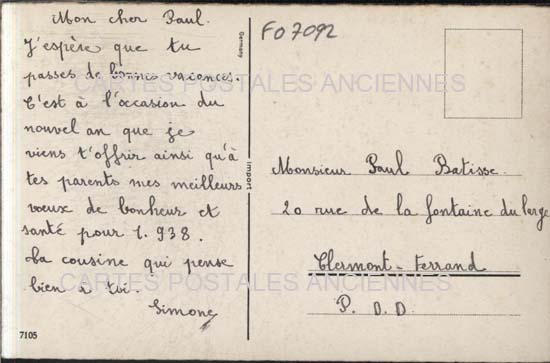 Mon cher Paul.
J'espère que tu
passes de bonnes vacances.
C'est à l'occasion du
nouvel an que je
viens t'offrir ainsi qu'à
tes parents mes meilleurs
voeux de bonheur et
santé pour 1.938.
Ta cousine qui pense
bien à toi.
Simone
7105
Germany
import
FO7092
Monsieur Paul Batisse.
20 rue de la fontaine du large
Clermont-Ferrand
P. D. D.
CARTES POSTALES ANCIENNES
CARTES POSTALES ANCIENNES